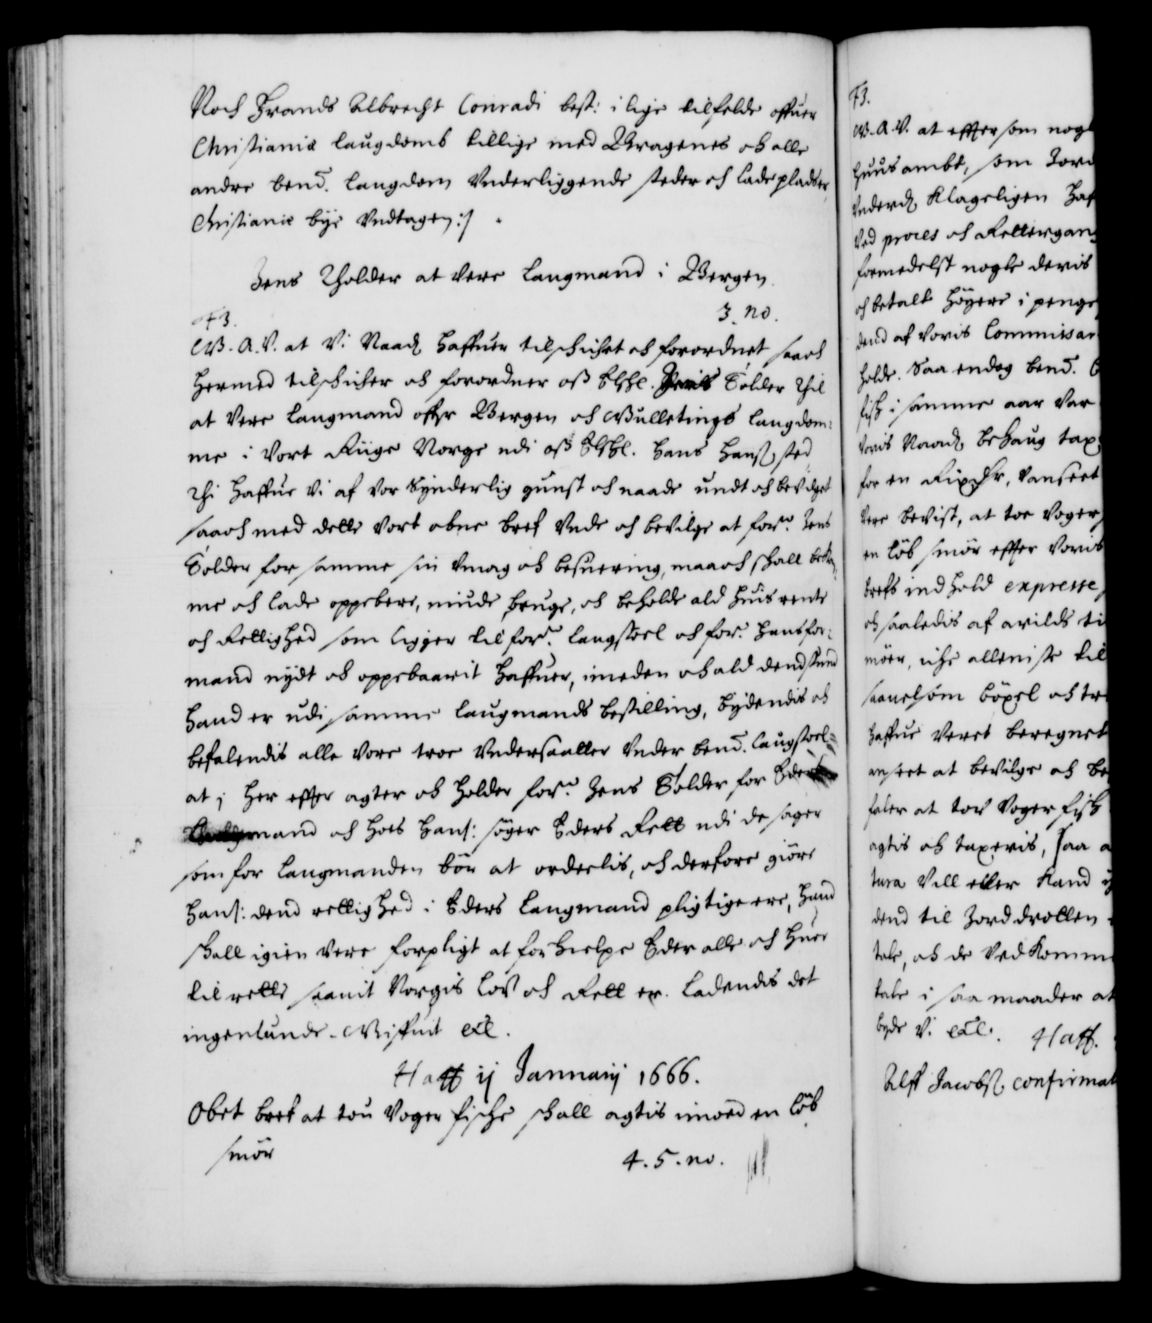 Noch Frands Albrecht Conradi best: i lige tilfelde offuer
Christianiæ laugdomb tillige med Bragenes och alle
andre bend. laugdom Underliggende steder och ladepladser
Christianiæ bye Undtagen :/ .
Jens Tholder at Vere Laugmand i Bergen
3. no.
F3.
G. A. V. at Vi Naad haffuer tilschichet och forordnet, saa och
hermed tilschicher och forordner oß Elshl. Jens Tolder Thil
at Vere Laugmand offr Bergen och Gulletings Laugdom:
me i Vort Riige Norge udi oß Elshl. Hans Hanß sted
Thi haffue Vi af Vor Synderlig gunst och naade undt och bevilget
saa och med dette Vort obne bref Unde och bevilge at forne Jens
Tolder for samme sin Umag och besuering, maa och schall bekom,
me och lade oppebere, niude bruge, och beholde ald huis rente
och Rettighed som ligger til forne laugstoel och forne hans for:
mand nydt och oppebaarit haffuer, imeden och ald dend stund
hand er udi samme Laugmands bestilling, bydendis och
befalendis alle Vore troe Undersaatter Under bend. laugstoel
at i her effter agter och holder forne Jens Tolder for Eders
Laugmand och hoes hans: søger Eders Rett udi de sager
som for Laugmanden bør at ordelis, och derfore giøre
hans: dend rettighed i Eders Laugmand pligtige ere, hand
schall igien Vere forpligt at forhielpe Eder alle och huer
til rette saauit Norgis Lov och Rett er. Ladendis det
ingenlunde. Giffuit etc.
Haff ij Januarij 1666.
Obet bref at tou Voger fische schall agtis imoed en løb
smør
4. 5. no.
F3.
G. A. V. at effter som nogle
huusambt, som Jord
Underd. klageligen haf
Ved proces och Rettergang
formedelst nogle deris
och betalt høyere i penge
dend af Voris Commissar
holde. Saa endog bend.
fisk i samme aar Var
Voris Naad. behaug tax
for en Rixdlr, Vanseet
Vere bevist, at toe Voger
en løb smør effter Voris
brefs indhold expresse
och saaledis af arilds ti
møer, iche alleniste til
saauelsom böxel och tre
haffue Veret beregnet
anseet at bevilge och be
faler at tou Voger fisk
agtis och taxeris, saa a
tura Vill eller kand
dend til Jorddrotten
tale, och de Vedkomme
tale i saa maader at
byde Vi etc. Haff.
Alff Jacobß. confirmat